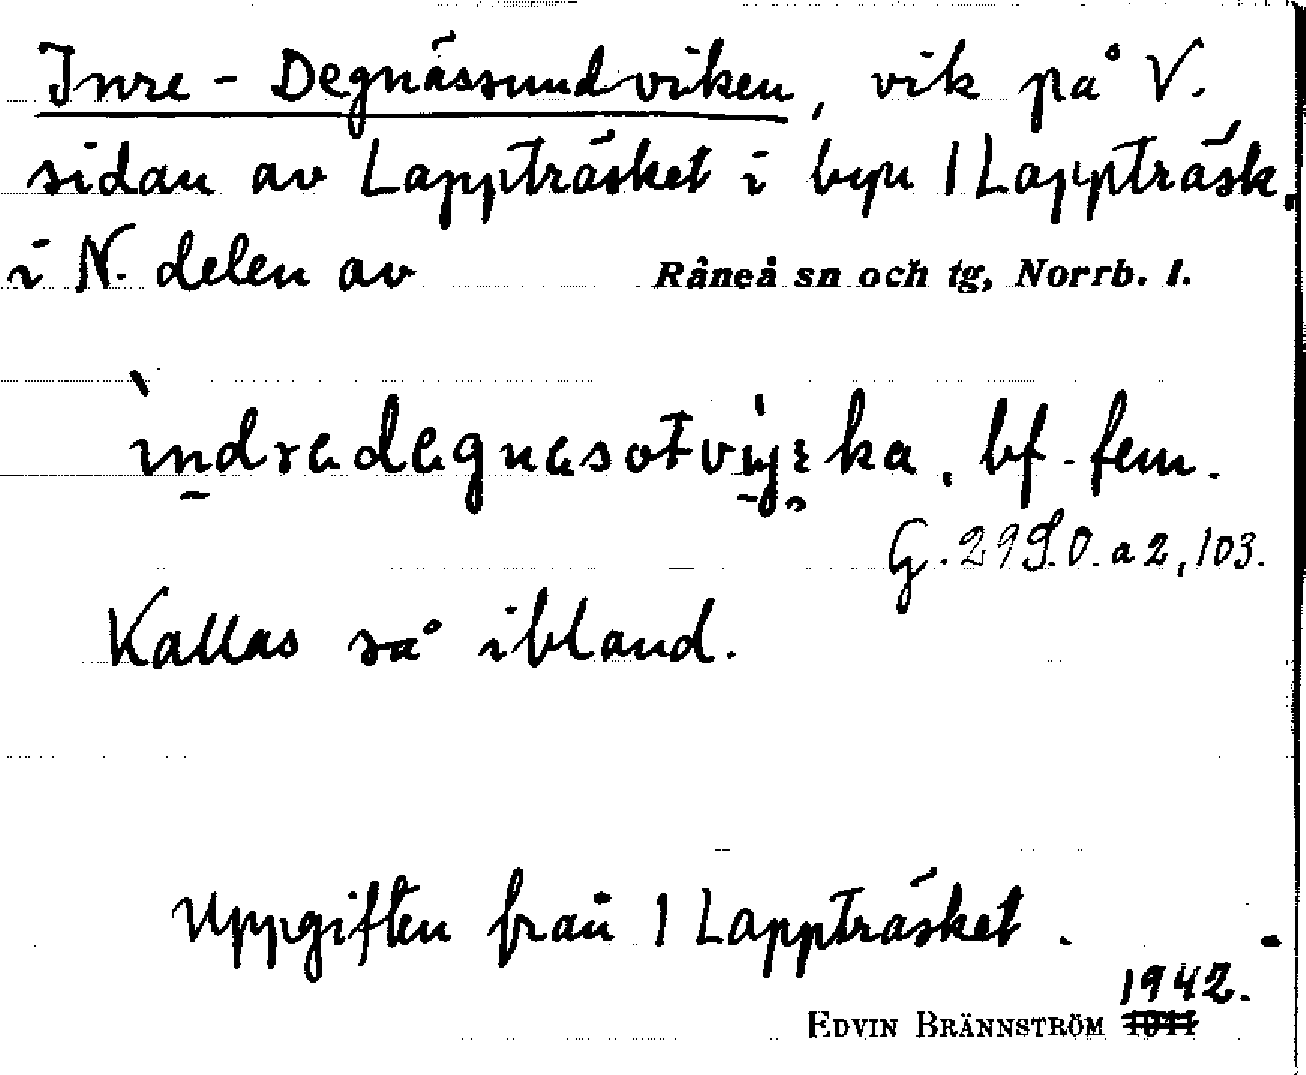 Inre-Degnässundviken, vik på V.
sidan av Lappträsket i byn 1 Lappträsk,
i N. delen av Råneå sn och tg, Norrb. l.
bf. fem.
G. 299.0.a2, 103.
Kallas så ibland.
Uppgiften från 1 Lappträsket.
1942.
EDVIN BRÄNNSTRÖM 1941